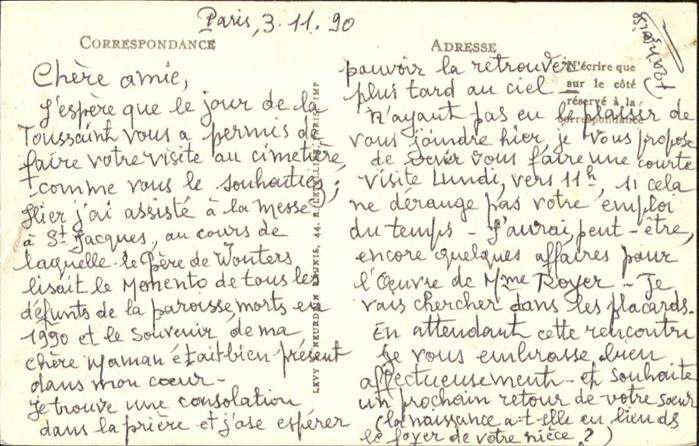 Paris, 3.11.90
CORRESPONDANCE
Chère amie,
J'espère que le jour de la
Toussaint vous a permis de
faire votre visite au cimetière,
comme vous le souhaitiez;
Hier j'ai assisté à la messe
à St Jacques, au cours de
laquelle le Père de Wouters
lisait le Momento de tous les
défunts de la paroisse, morts en
1990 et le souvenir de ma
chère maman était bien présent
dans mon coeur -
Je trouve une consolation
dans la prière et j'ose espérer
LEVY ET NEURDEIN RÉUNIS, 44, R. LETELLIER, PARIS IMP
ADRESSE
N'écrire que
sur le côté
réservé à la
correspondance
pouvoir la retrouver
plus tard au ciel -
N'ayant pas eu le plaisir de
vous joindre hier, je vous propose
de venir vous faire une courte
visite Lundi, vers 11h, si cela
ne dérange pas votre emploi
du temps - J'aurai, peut-être,
encore quelques affaires pour
l'Œuvre de Mme Royer - Je
vais chercher dans les placards.
En attendant cette rencontre
je vous embrasse bien
affectueusement - et souhaite
un prochain retour de votre soeur
(la naissance a-t-elle eu lieu ds
le foyer de votre nièce ?)